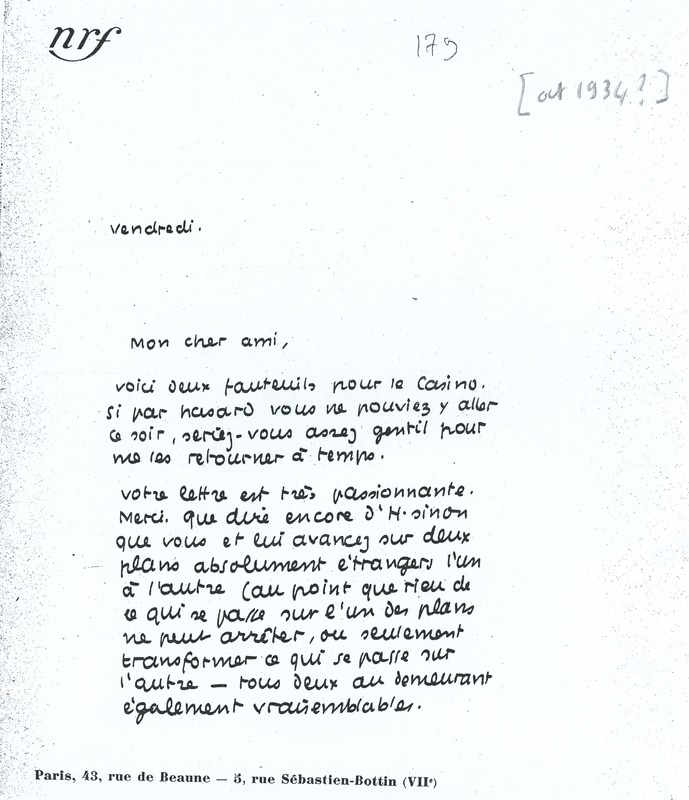 nrf
179
[oct 1934?]
vendredi.
Mon cher ami,
voici deux fauteuils pour le Casino.
si par hasard vous ne pouviez y aller
ce soir, seriez-vous assez gentil pour
me les retourner à temps.
votre lettre est très passionnante.
Merci. que dire encore d'H. sinon
que vous et lui avancez sur deux
plans absolument étrangers l'un
à l'autre (au point que rien de
ce qui se passe sur l'un des plans
ne peut arrêter, ou seulement
transformer ce qui se passe sur
l'autre — tous deux au demeurant
également vraisemblables.
Paris, 43, rue de Beaune — 5, rue Sébastien-Bottin (VIIe)